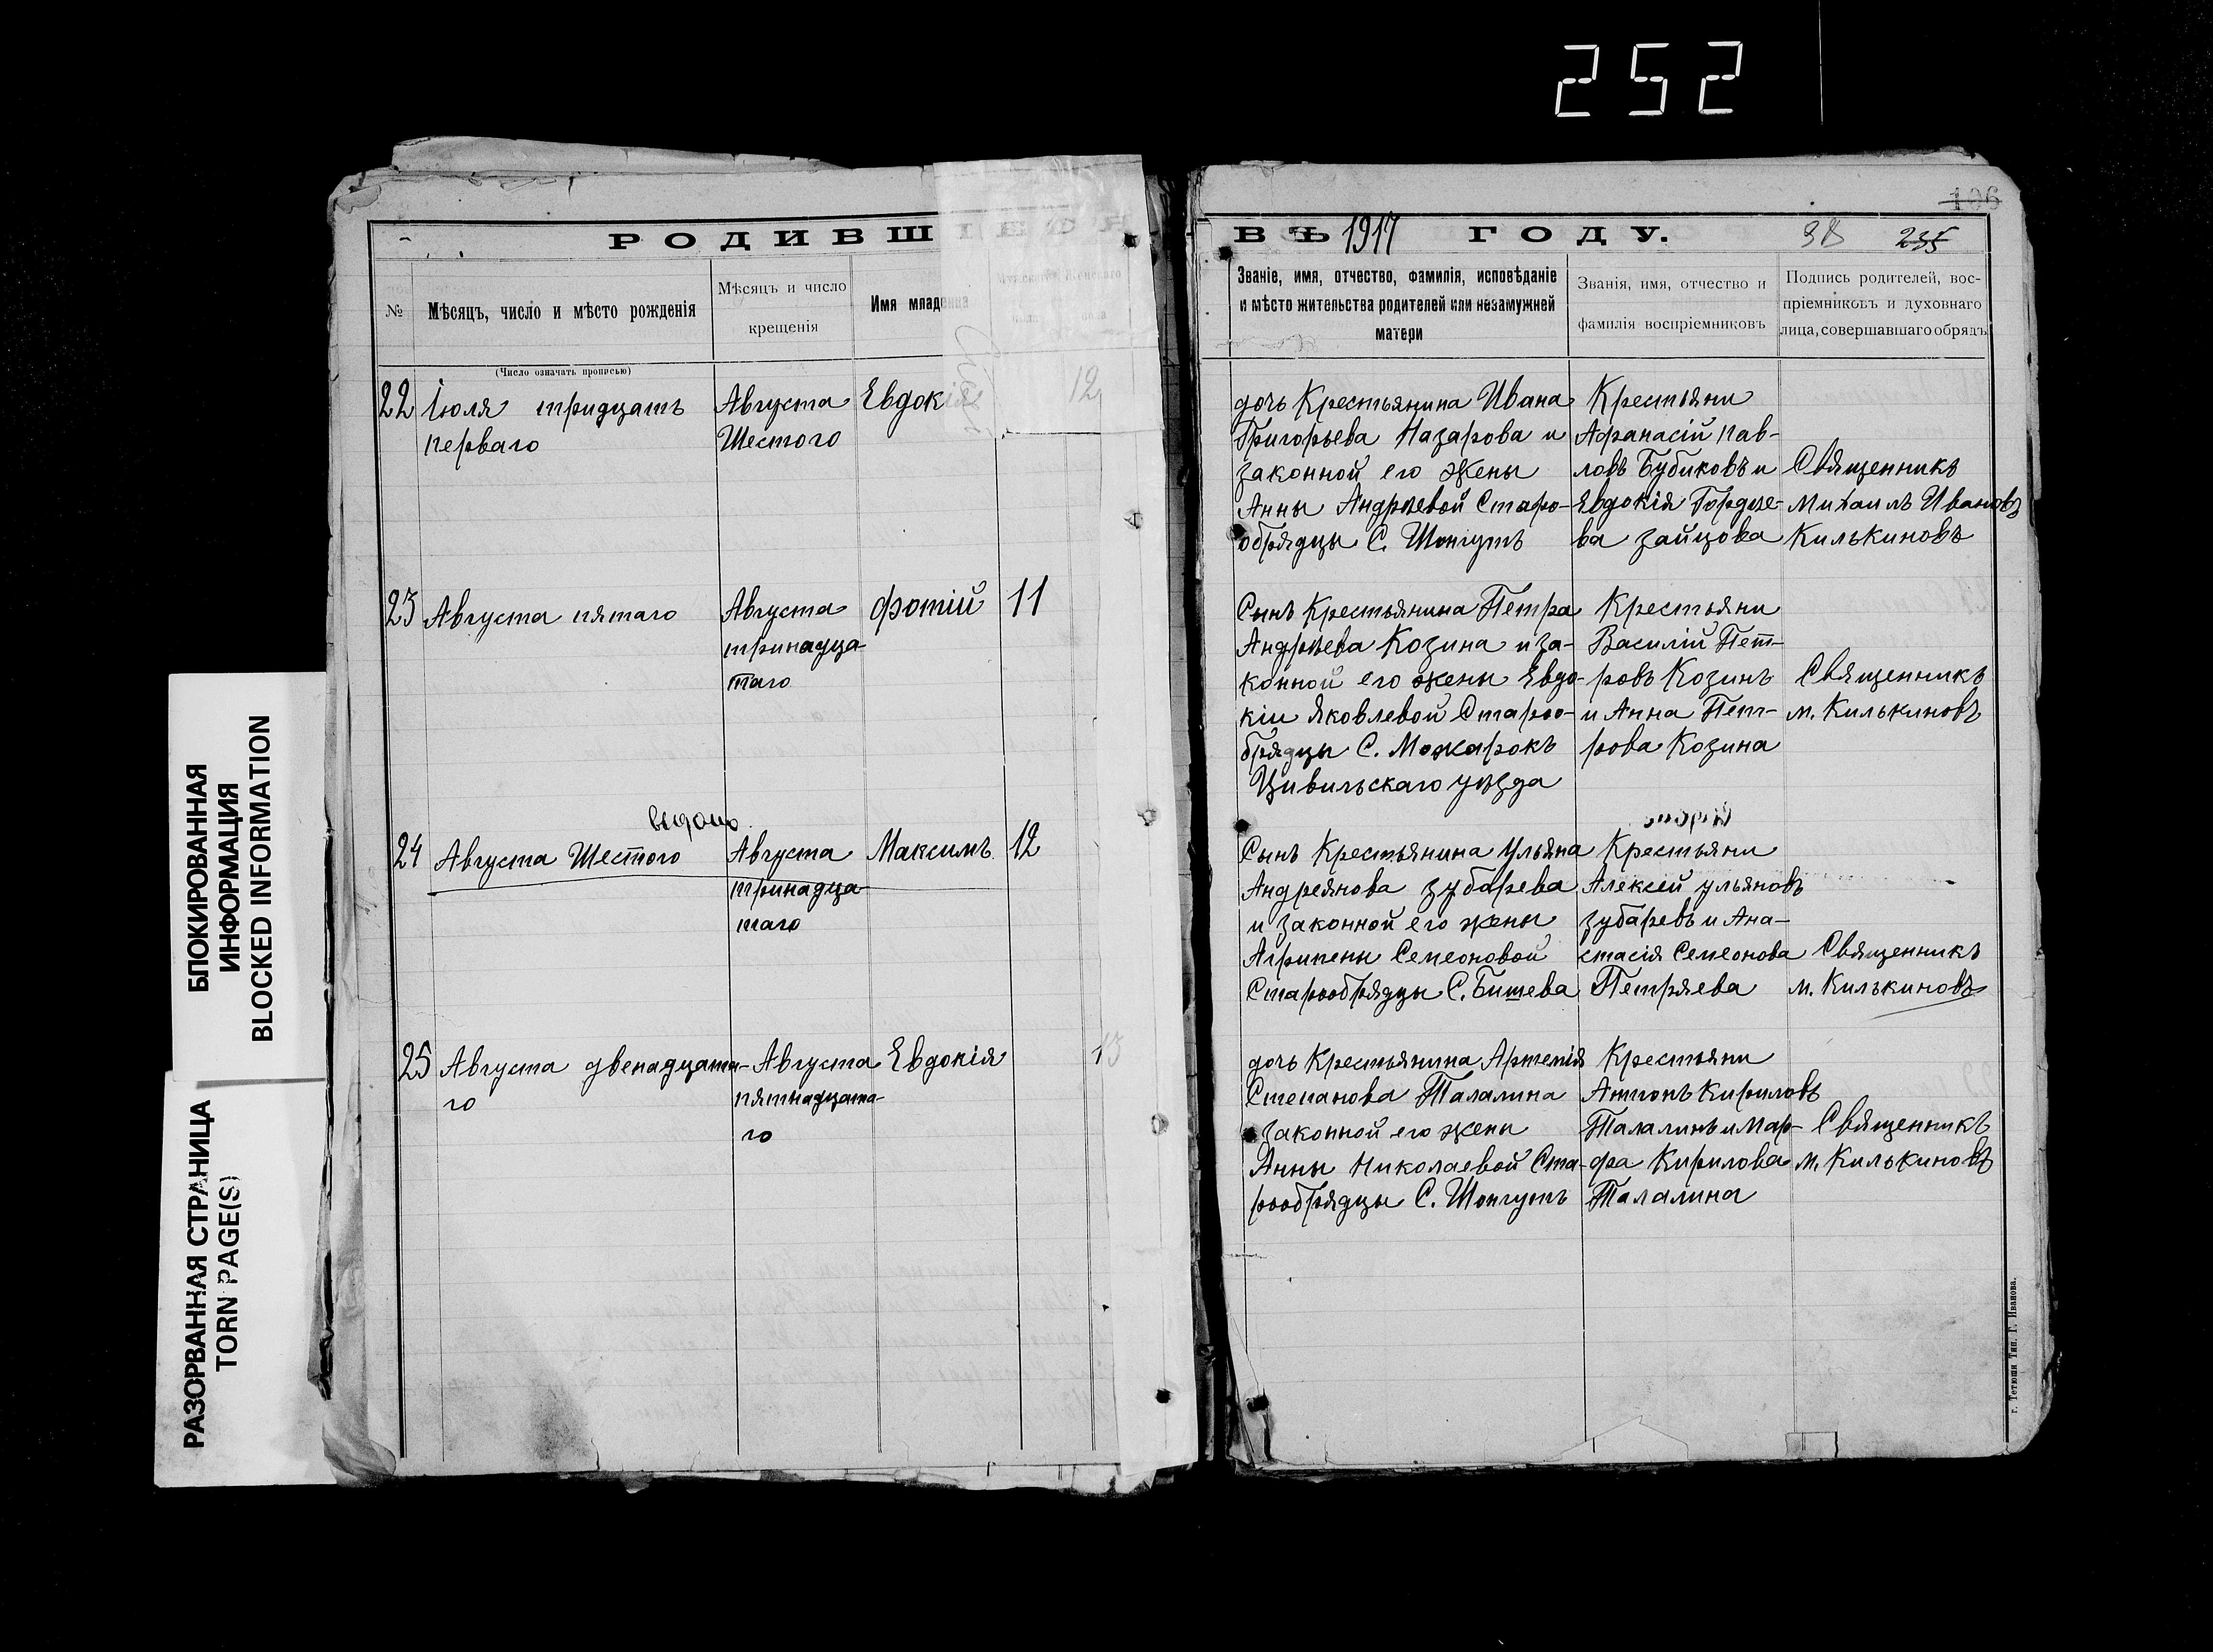 252
106
РОДИВШІЕСЯ
ВЪ 1917 ГОДУ.
38 235
№
Мѣсяцъ, число и мѣсто рожденія
Мѣсяцъ и число
крещенія
Имя младенца
Мужскаго Женскаго
пола пола
Званіе, имя, отчество, фамилія, исповѣданіе
и мѣсто жительства родителей или незамужней
матери
Званія, имя, отчество и
фамилія воспріемниковъ
Подпись родителей, вос-
пріемниковъ и духовнаго
лица, совершавшаго обрядъ
(Число означать прописью)
22 Іюля тридцать
перваго
Августа
Шестого
Евдокія
12
дочь Крестьянина Ивана
Григорьева Назарова и
законной его жены
Анны Андреевой Старо-
обрядцы С. Шонгутъ
Крестьяни
Афанасій Пав-
ловъ Бубиковъ и
Евдокія Гордее-
ва Зайцова
Священникъ
Михаилъ Ивановъ
Килькиновъ
23 Августа пятаго
Августа
тринадца-
таго
Фотій
11
Сынъ Крестьянина Петра
Андрѣева Козина и за-
конной его жены Евдо-
кіи Яковлевой Староо-
брядцы С. Можарокъ
Цивильскаго уѣзда
Крестьяни
Василій Пет-
ровъ Козинъ
и Анна Пет-
рова Козина
Священникъ
М. Килькиновъ
выдано
24 Августа Шестого
Августа
тринадца-
таго
Максимъ
12
Сынъ Крестьянина Ульяна
Андреянова Зубарева
и законной его жены
Агрипены Семеоновой
Старообрядцы С. Бишева
Крестьяни
Алексей Ульяновъ
Зубаревъ и Ана-
стасія Семеонова
Петряева
Священникъ
М. Килькиновъ
25 Августа двенадцата-
го
Августа
пятнадцата-
го
Евдокія
13
дочь Крестьянина Артемія
Степанова Талалина
законной его жены
Анны Николаевой Ста-
рообрядцы С. Шонгутъ
Крестьяни
Антонъ Кириловъ
Талалинъ и Мар-
фа Кирилова
Талалина
Священникъ
М. Килькиновъ
г. Тетюши Тип. Г. Иванова.
БЛОКИРОВАННАЯ
ИНФОРМАЦИЯ
BLOCKED INFORMATION
РАЗОРВАННАЯ СТРАНИЦА
TORN PAGE(S)